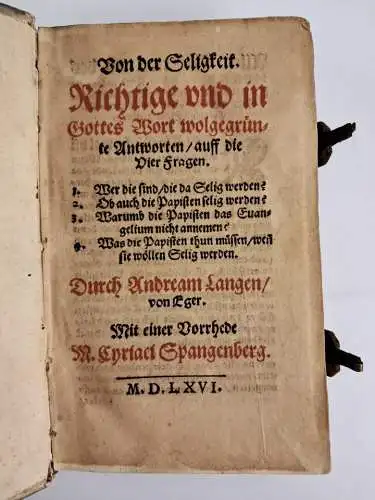 Von der Seligkeit.
Richtige vnd in
Gottes Wort wolgegrün-
te Antworten/auff die
Vier Fragen.
1. Wer die sind/die da Selig werden?
2. Ob auch die Papisten selig werden?
3. Warumb die Papisten das Euan-
gelium nicht annemen?
4. Was die Papisten thun müssen/weñ
sie wöllen Selig werden.
Durch Andream Langen/
von Eger.
Mit einer Vorrhede
M. Cyriaci Spangenberg.
M. D. LXVI.